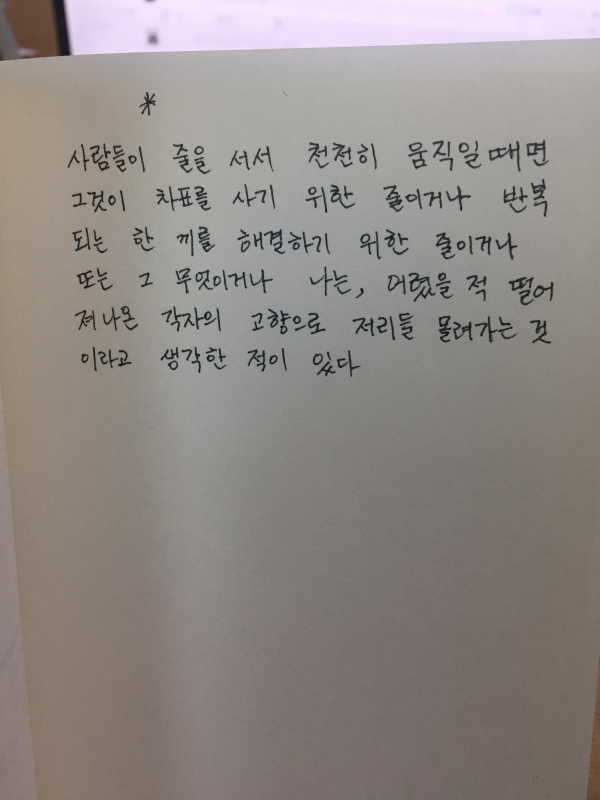 *
사람들이 줄을 서서 천천히 움직일때면
그것이 차표를 사기 위한 줄이거나 반복
되는 한 끼를 해결하기 위한 줄이거나
또는 그 무엇이거나 나는, 어렸을 적 떨어
져나온 각자의 고향으로 저리들 몰려가는 것
이라고 생각한 적이 있다